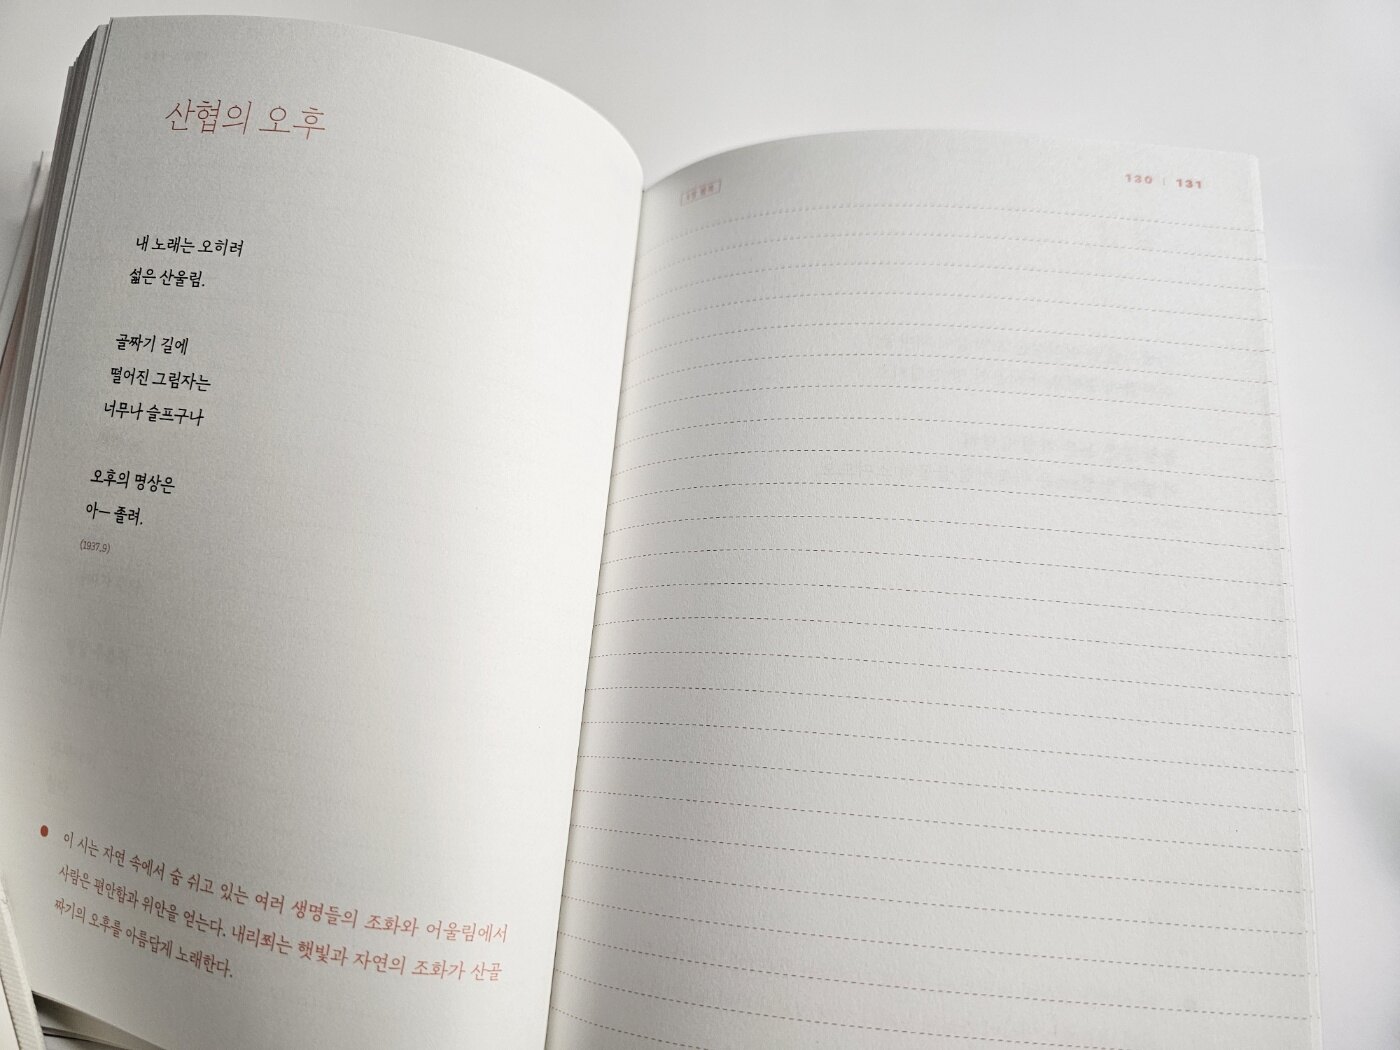 산협의 오후
내 노래는 오히려
섧은 산울림.
골짜기 길에
떨어진 그림자는
너무나 슬프구나
오후의 명상은
아— 졸려.
(1937.9)
이 시는 자연 속에서 숨 쉬고 있는 여러 생명들의 조화와 어울림에서
사람은 편안함과 위안을 얻는다. 내리쬐는 햇빛과 자연의 조화가 산골
짜기의 오후를 아름답게 노래한다.
130 | 131